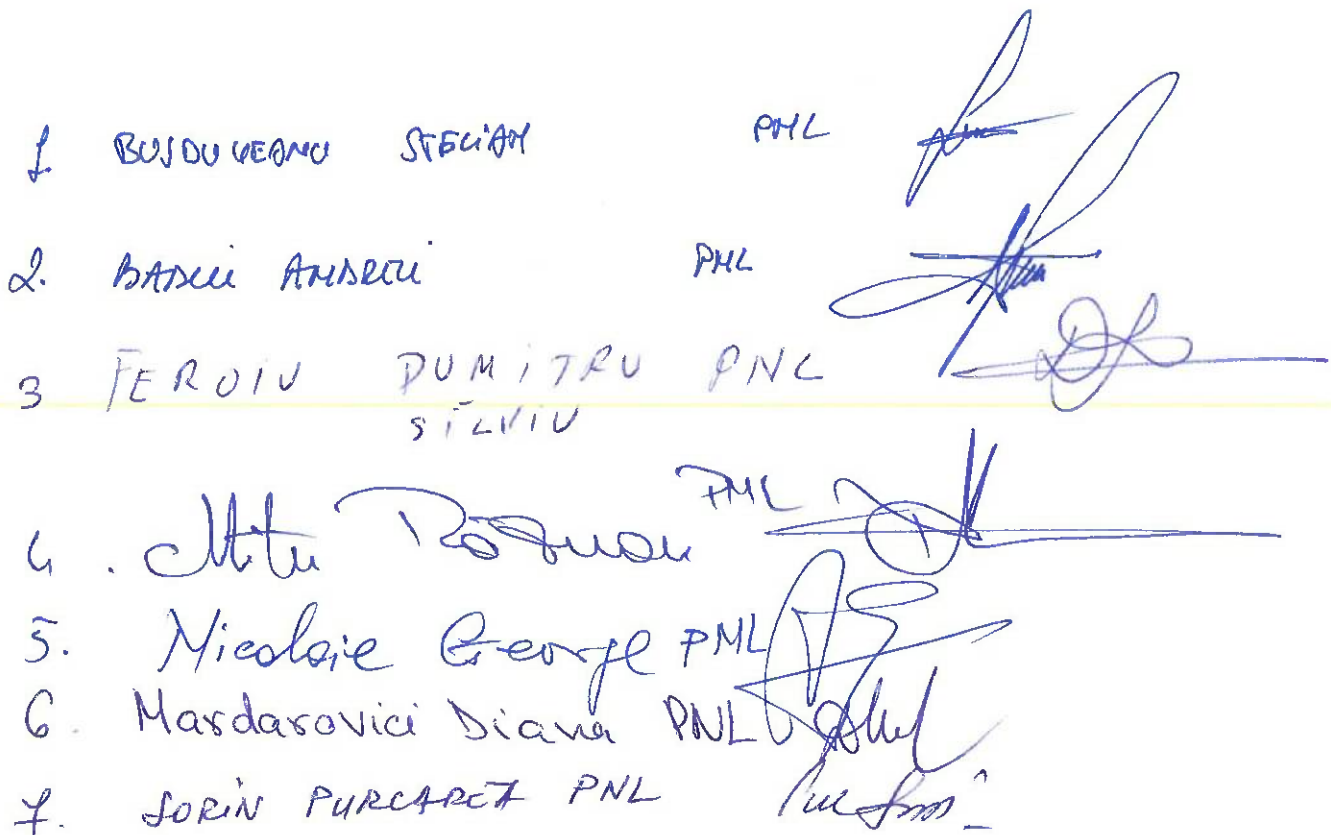 1. BUJDUVEANU STELIAN PNL
2. BADIU ANDREI PNL
3 FEROIU DUMITRU PNL
SILVIU
4. Mitu Răzvan PNL
5. Nicolaie George PNL
6. Mardarovici Diana PNL
7. SORIN PURCAREA PNL